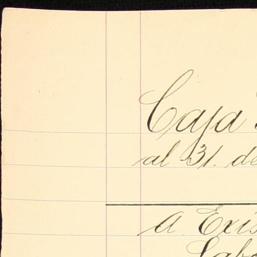 Caja
al 31. de
A Exis
Labo